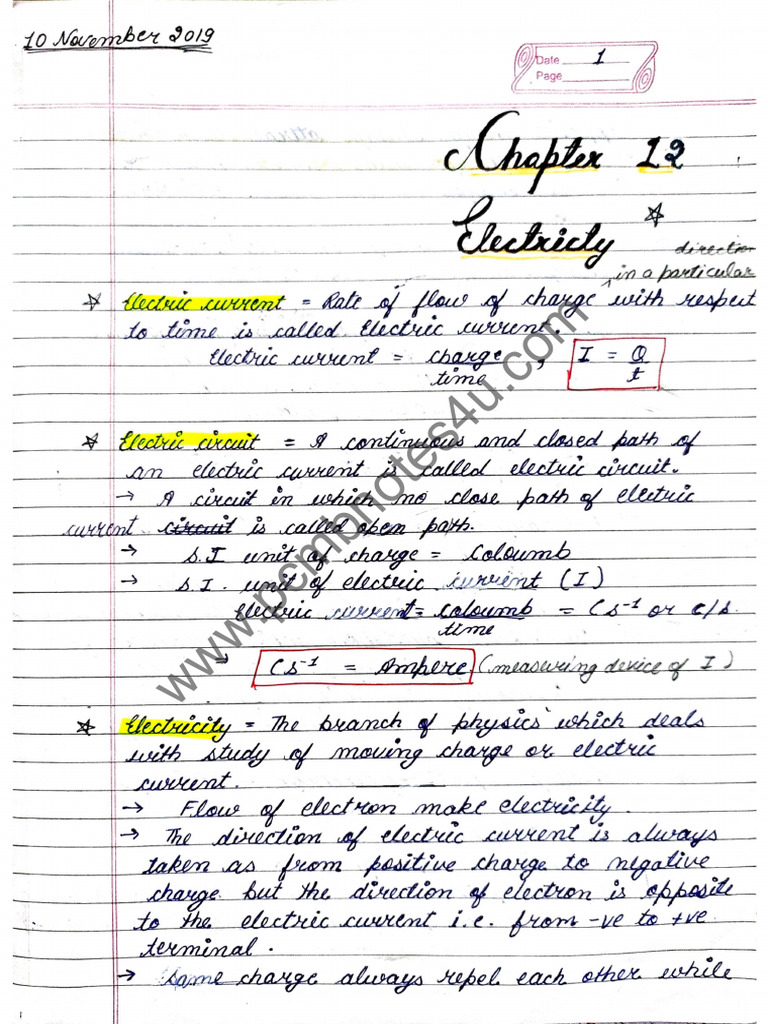 10 November 2019
Date 1
Page
Chapter 12
Electricty
direction
in a particular
Electric current = Rate of flow of charge with respect
to time is called Electric current.
Electric current = charge / time , I = Q / t
Electric circuit = A continuous and closed path of
an electric current is called electric circuit.
→ A circuit in which no close path of electric
current circuit is called open path.
→ S.I unit of charge = Coloumb
→ S.I. unit of electric current (I)
Electric current = Coloumb / time = Cs⁻¹ or c/s.
→ Cs⁻¹ = Ampere. (measuring device of I)
Electricity = The branch of physics which deals
with study of moving charge or electric
current.
→ Flow of electron make electricity.
→ The direction of electric current is always
taken as from positive charge to negative
charge but the direction of electron is opposite
to the electric current i.e. from -ve to +ve
terminal.
→ Same charge always repel each other while
www.pcmbnotes4u.com